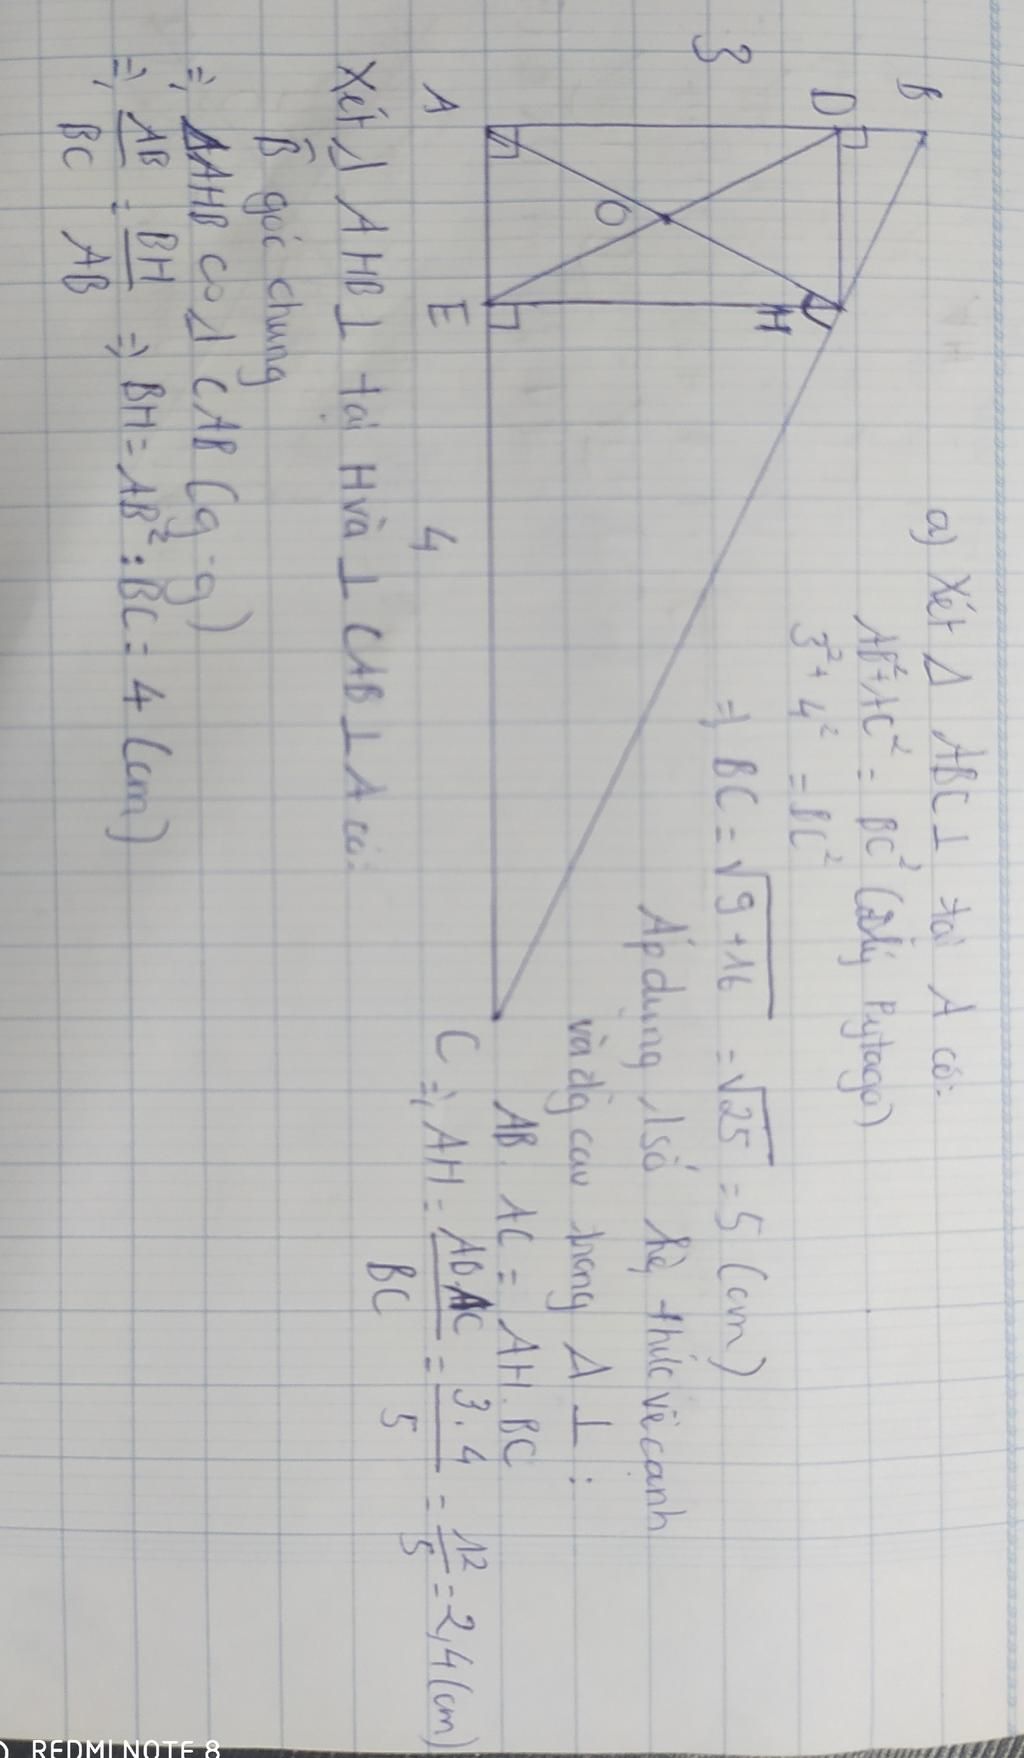 a) Xét Δ ABC ⊥ tại A có:
AB² + AC² = BC² (đlý Pytago)
3² + 4² = BC²
=> BC = √9+16 = √25 = 5 (cm)
Áp dụng 1 số hệ thức về cạnh
và đg cao trong Δ ⊥ :
AB. AC = AH. BC
=> AH = AB.AC / BC = 3.4 / 5 = 12 / 5 = 2,4 (cm)
B
D
3
H
O
A
E
4
C
Xét Δ AHB ⊥ tại H và ⊥ CAB ⊥ A có:
B̂ góc chung
=> ΔAHB ∽ Δ CAB (g-g)
=> AB / BC = BH / AB => BH = AB² : BC = 4 (cm)
REDMI NOTE 8